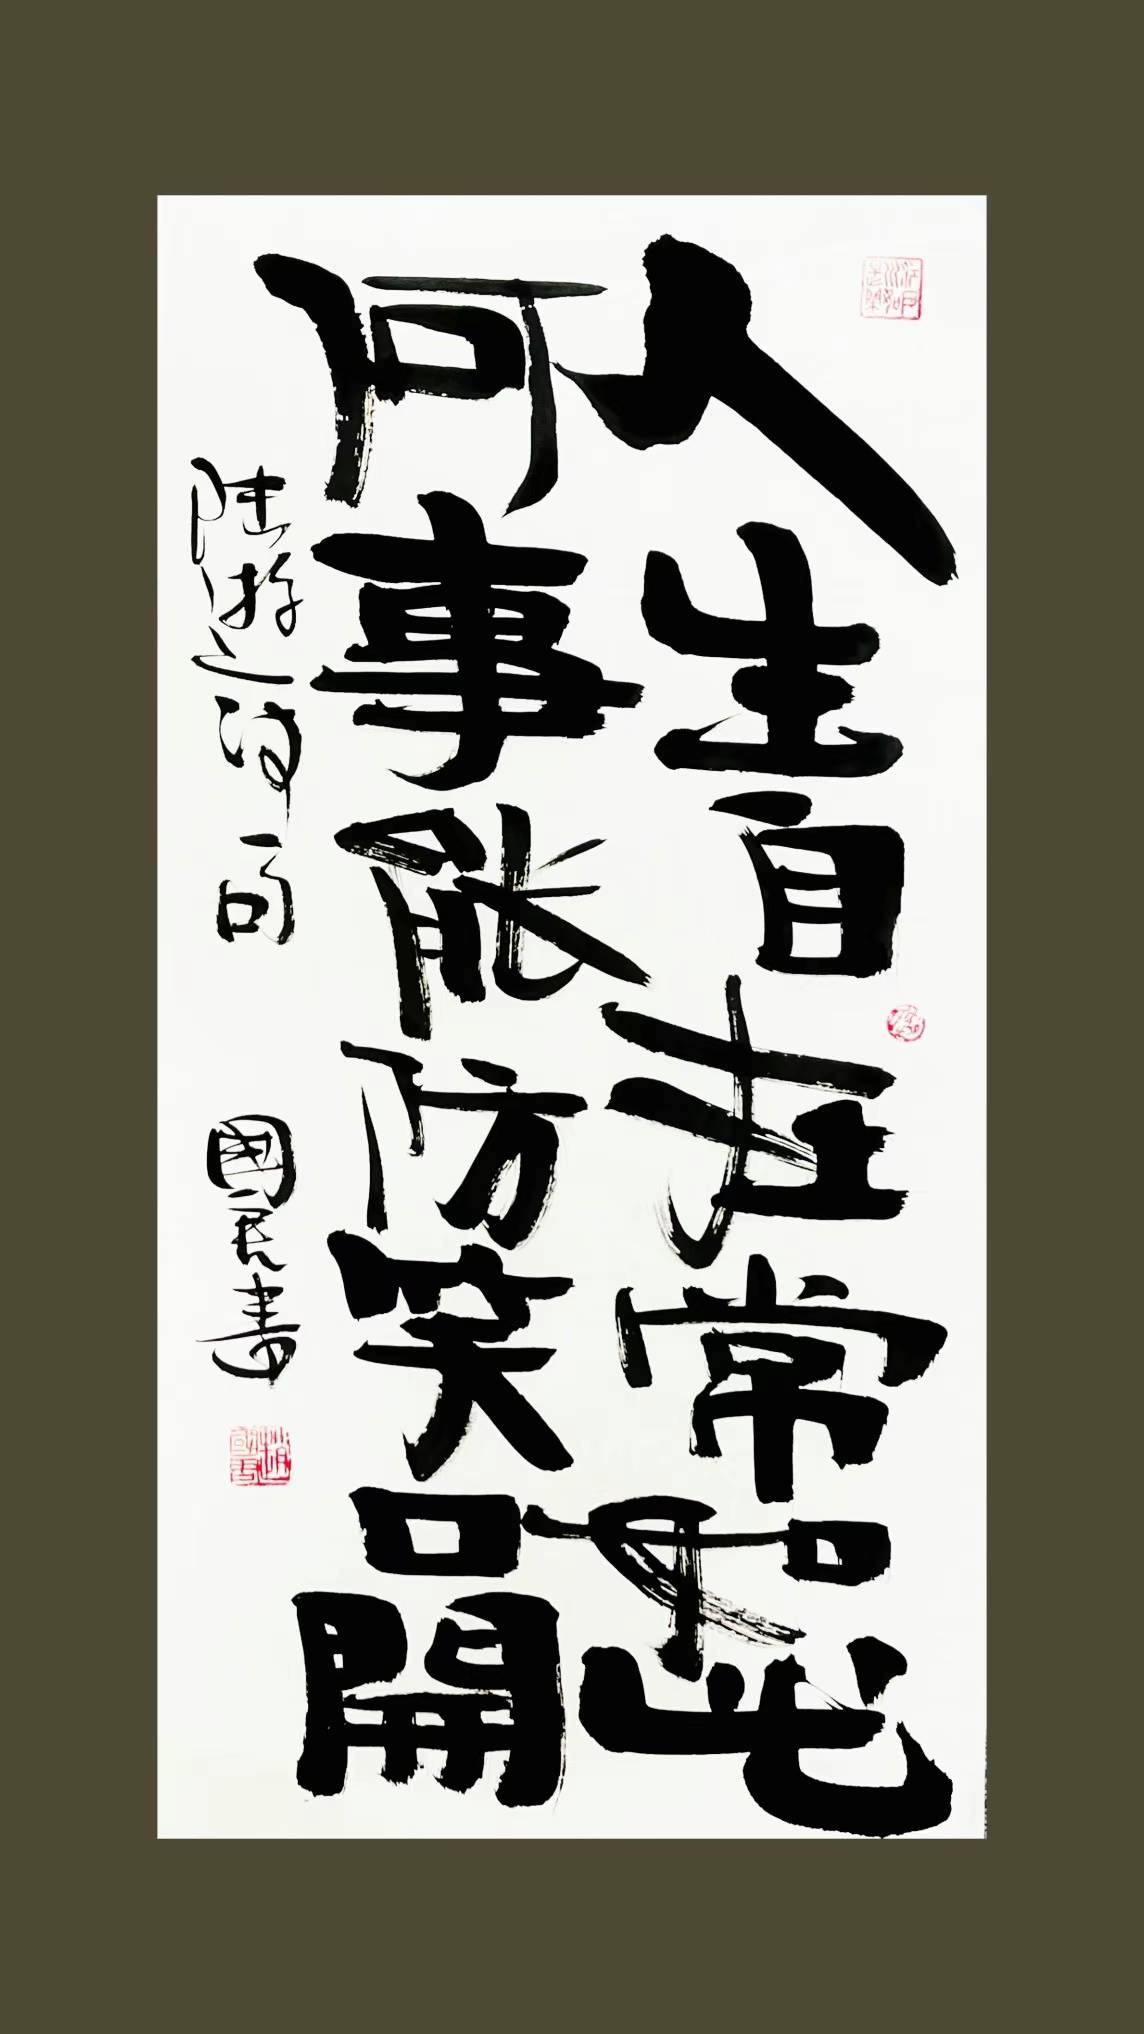 人生自在常如此
何事能防笑口開
陸游之詩句
國民書